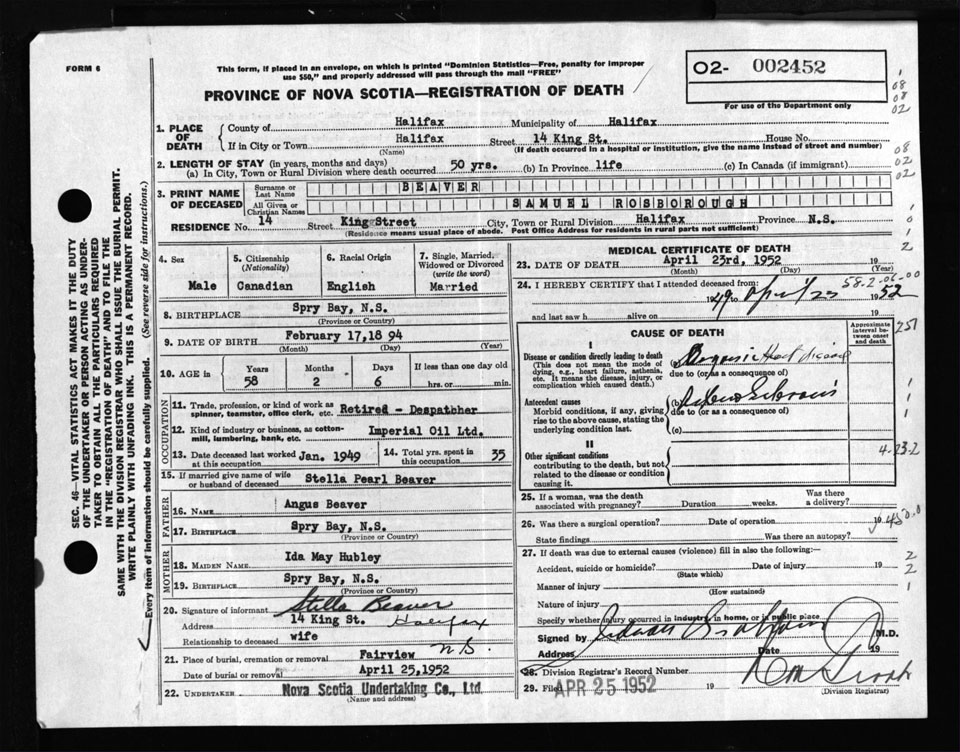 FORM 6
This form, if placed in an envelope, on which is printed "Dominion Statistics—Free, penalty for improper
use $50," and properly addressed will pass through the mail "FREE"
PROVINCE OF NOVA SCOTIA—REGISTRATION OF DEATH
02- 002452
For use of the Department only
1. PLACE OF DEATH
County of Halifax Municipality of Halifax
If in City or Town Halifax Street 14 King St. House No.
(Name) (If death occurred in a hospital or institution, give the name instead of street and number)
2. LENGTH OF STAY (in years, months and days)
(a) In City, Town or Rural Division where death occurred 50 yrs. (b) In Province life (c) In Canada (if immigrant)
3. PRINT NAME OF DECEASED
Surname or Last Name BEAVER
All Given or Christian Names SAMUEL ROSBOROUGH
RESIDENCE No. 14 Street King Street City, Town or Rural Division Halifax Province N.S.
(Residence means usual place of abode. Post Office Address for residents in rural parts not sufficient)
4. Sex
Male
5. Citizenship
(Nationality)
Canadian
6. Racial Origin
English
7. Single, Married,
Widowed or Divorced
(write the word)
Married
8. BIRTHPLACE Spry Bay, N.S.
(Province or Country)
9. DATE OF BIRTH February 17, 18 94
(Month) (Day) (Year)
10. AGE in
Years Months Days If less than one day old
58 2 6 hrs. or min.
OCCUPATION
11. Trade, profession, or kind of work as
spinner, teamster, office clerk, etc. Retired - Despatcher
12. Kind of industry or business, as cotton-
mill, lumbering, bank, etc. Imperial Oil Ltd.
13. Date deceased last worked
at this occupation Jan. 1949
14. Total yrs. spent in
this occupation 35
15. If married give name of wife
or husband of deceased Stella Pearl Beaver
FATHER
16. NAME Angus Beaver
17. BIRTHPLACE Spry Bay, N.S.
(Province or Country)
MOTHER
18. MAIDEN NAME Ida May Hubley
19. BIRTHPLACE Spry Bay, N.S.
(Province or Country)
20. Signature of informant Stella Beaver
Address 14 King St. Halifax
N.S.
Relationship to deceased wife
21. Place of burial, cremation or removal Fairview
Date of burial or removal April 25, 1952
22. UNDERTAKER Nova Scotia Undertaking Co., Ltd.
(Name and address)
MEDICAL CERTIFICATE OF DEATH
23. DATE OF DEATH April 23rd, 1952 19
(Month) (Day) (Year)
24. I HEREBY CERTIFY that I attended deceased from 58-2-06-00
1949 to April 23 1952
and last saw h alive on 19
CAUSE OF DEATH
Approximate
interval be-
tween onset
and death
I
Disease or condition directly leading to death
(This does not mean the mode of
dying, e.g., heart failure, asthenia,
etc. It means the disease, injury, or
complication which caused death.)
(a) Heart disease
due to (or as a consequence of)
Antecedent causes
Morbid conditions, if any, giving
rise to the above cause, stating the
underlying condition last.
(b)
due to (or as a consequence of)
(c)
II
Other significant conditions
contributing to the death, but not
related to the disease or condition
causing it.
4-23-2
25. If a woman, was the death
associated with pregnancy? Duration weeks. Was there
a delivery?
26. Was there a surgical operation? Date of operation 19
State findings Was there an autopsy?
27. If death was due to external causes (violence) fill in also the following:—
Accident, suicide or homicide? Date of injury 19
(State which)
Manner of injury
(How sustained)
Nature of injury
Specify whether injury occurred in industry, in home, or in public place
Signed by M.D.
Address Date 19
28. Division Registrar's Record Number
29. Filed APR 25 1952 19
(Division Registrar)
SEC. 46—VITAL STATISTICS ACT MAKES IT THE DUTY
OF THE UNDERTAKER OR PERSON ACTING AS UNDER-
TAKER TO OBTAIN ALL THE PARTICULARS REQUIRED
IN THE "REGISTRATION OF DEATH" AND TO FILE THE
SAME WITH THE DIVISION REGISTRAR WHO SHALL ISSUE THE BURIAL PERMIT.
WRITE PLAINLY WITH UNFADING INK. THIS IS A PERMANENT RECORD.
Every item of information should be carefully supplied. (See reverse side for instructions.)